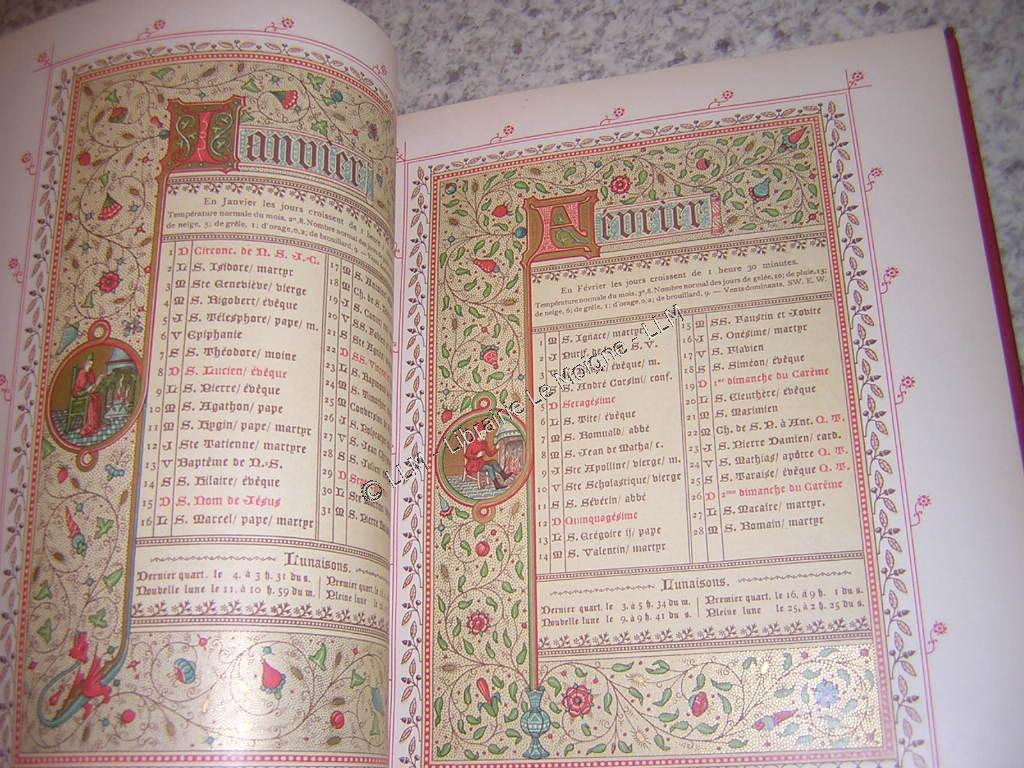 Janvier
En Janvier les jours croissent de
Température normale du mois, 2º,8. Nombre normal des jours
de neige, 5; de grêle, 1; d'orage, 0,2; de brouillard,
1 D Circonc. de N. S. J.-C.
2 L S. Isidore/ martyr
3 M Ste Geneviève/ vierge
4 M S. Rigobert/ évêque
5 J S. Télesphore/ pape/ m.
6 V Epiphanie
7 S S. Théodore/ moine
8 D S. Lucien/ évêque
9 L S. Pierre/ évêque
10 M S. Agathon/ pape
11 M S. Hygin/ pape/ martyr
12 J Ste Tatienne/ martyre
13 V Baptême de N.-S.
14 S S. Hilaire/ évêque
15 D S. Nom de Jésus
16 L S. Marcel/ pape/ martyr
17 M S.
18 M Ch. de S.
19 J S.
20 V SS.
21 S Ste
22 D SS.
23 L S.
24 M S.
25 M Conversion
26 J S.
27 V S. Jean
28 S S.
29 D
30 L Ste
31 M S. Pierre
Lunaisons.
Dernier quart. le 4. à 3 h. 31 du s.
Nouvelle lune le 11. à 10 h. 59 du m.
Premier quart. le
Pleine lune le
Février
En Février les jours croissent de 1 heure 30 minutes.
Température normale du mois, 3º,8. Nombre normal des jours de gelée, 10; de pluie, 13;
de neige, 6; de grêle, 1; d'orage, 0,2; de brouillard, 9. — Vents dominants, SW, E, W.
1 M S. Ignace/ martyr
2 J S. V.
3 V évêque/ m.
4 S S. André Corsini/ conf.
5 D Sexagésime
6 L S. Tite/ évêque
7 M S. Romuald/ abbé
8 M S. Jean de Matha/ c.
9 J Ste Apolline/ vierge/ m.
10 V Ste Scholastique/ vierge
11 S S. Séverin/ abbé
12 D Quinquagésime
13 L S. Grégoire ij/ pape
14 M S. Valentin/ martyr
15 M SS. Faustin et Jovite
16 J S. Onésime/ martyr
17 V S. Flavien
18 S S. Siméon/ évêque
19 D 1er dimanche du Carême
20 L S. Eleuthère/ évêque
21 M S. Maximien
22 M Ch. de S. P. à Ant. Q. T.
23 J S. Pierre Damien/ card.
24 V S. Mathias/ apôtre Q. T.
25 S S. Taraise/ évêque Q. T.
26 D 2me dimanche du Carême
27 L S. Macaire/ martyr.
28 M S. Romain/ martyr
Lunaisons.
Dernier quart. le 3. à 5 h. 34 du m.
Nouvelle lune le 9. à 9 h. 41 du s.
Premier quart. le 16. à 9 h. 1 du s.
Pleine lune le 25. à 2 h. 25 du s.
© LLM - Librairie Le Moigne - LLM